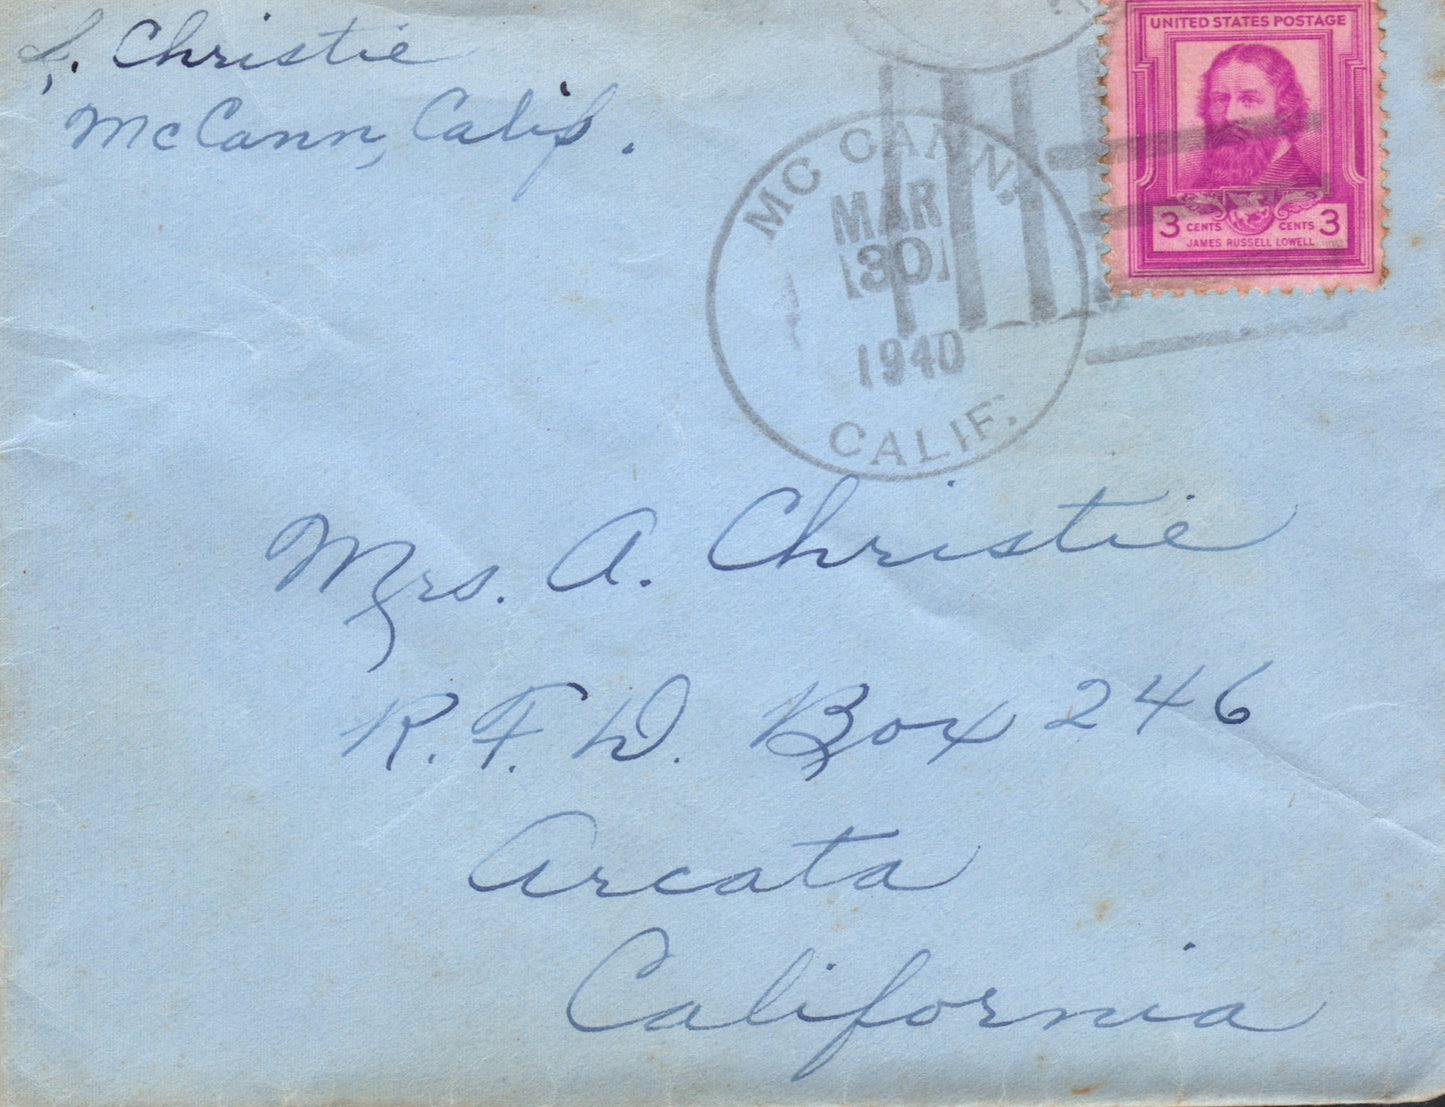 Christie
McCann, Calif.
UNITED STATES POSTAGE
3 CENTS CENTS 3
JAMES RUSSELL LOWELL
MC CANN,
MAR
30
1940
CALIF.
Mrs. A. Christie
R.F.D. Box 246
Arcata
California